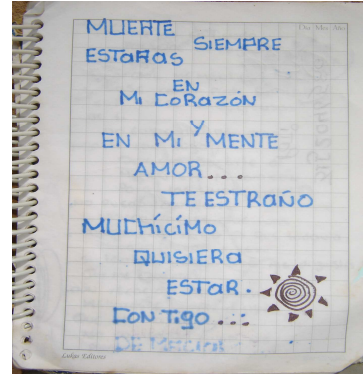 MUERTE
SIEMPRE
ESTARAS
EN
Mi CORAZÓN
Y
EN Mi MENTE
AMOR...
TE ESTRAÑO
MUCHíCíMO
QUISIERA
ESTAR.
CONTIGO...
Lukas Editores